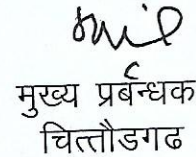 मुख्य प्रर्बन्धक
चित्तौडगढ